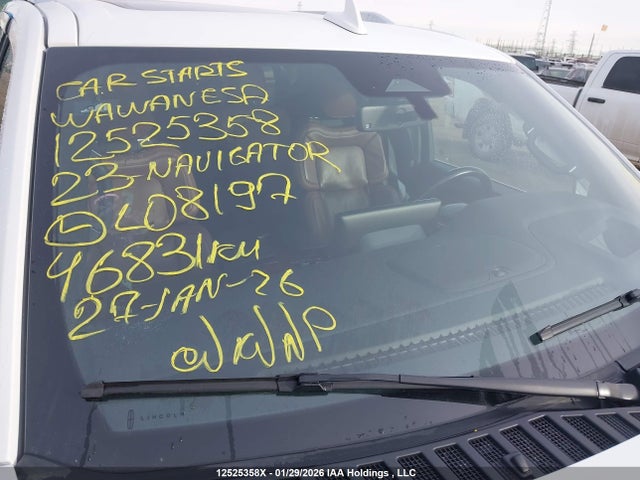 CAR STARTS
WAWANESA
12525358
23-NAVIGATOR
L08197
46831KM
27-JAN-26
LINCOLN
12525358X - 01/29/2026 IAA Holdings , LLC